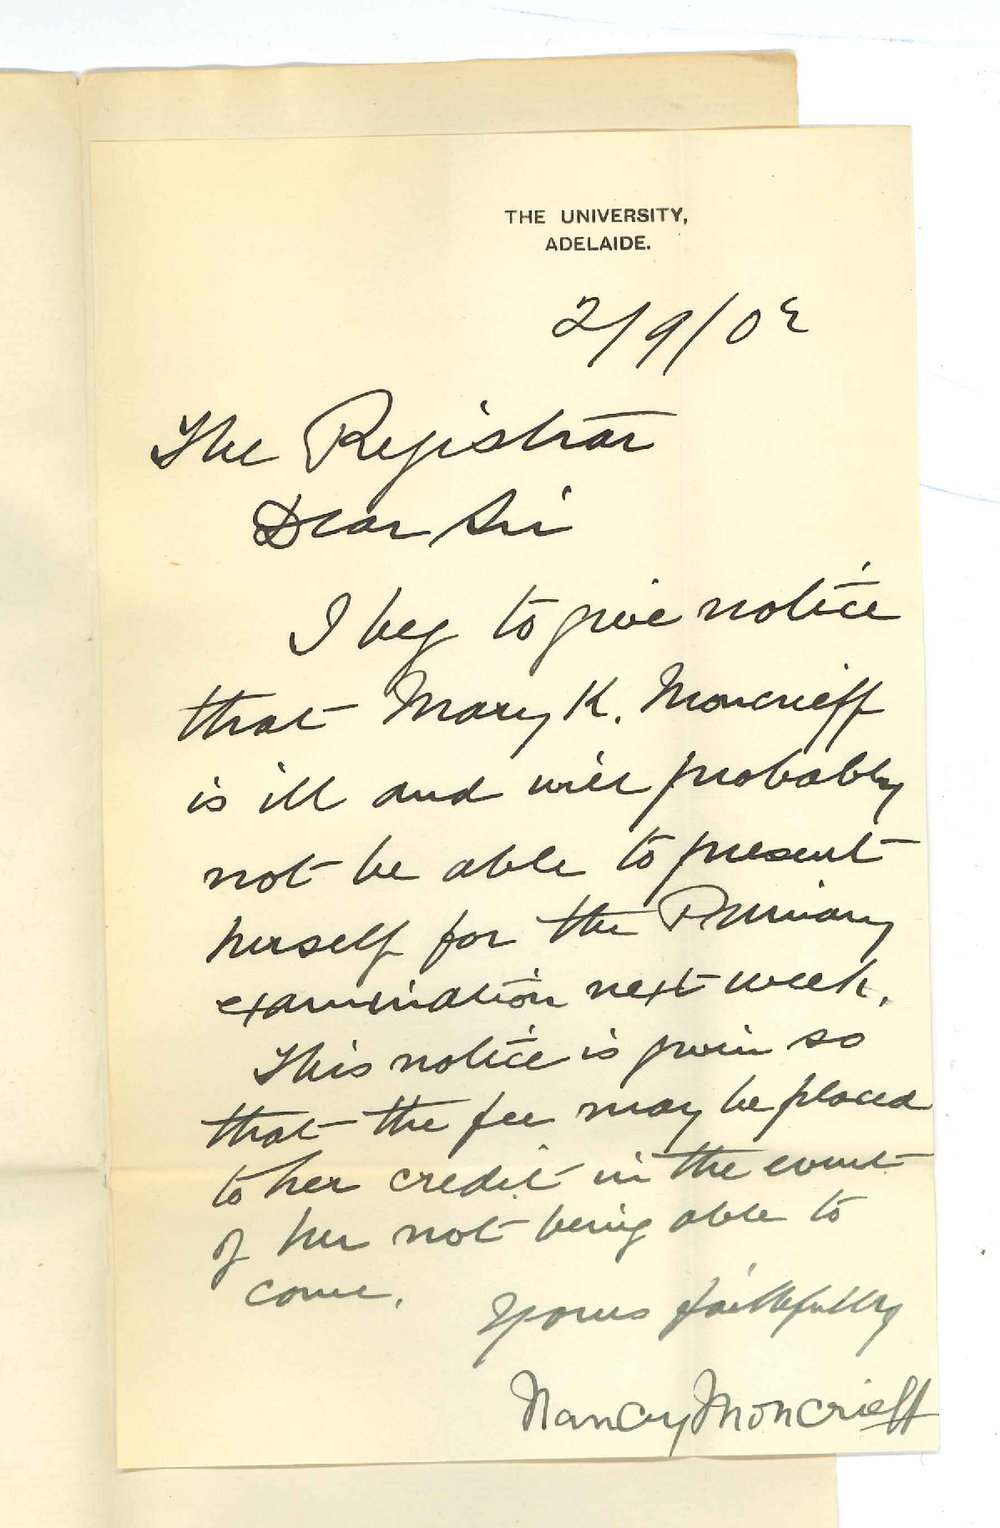 THE UNIVERSITY,
ADELAIDE.
2/9/02
The Registrar
Dear Sir
I beg to give notice
that Mary K. Moncrieff
is ill and will probably
not be able to present
herself for the Primary
examination next week.
This notice is given so
that the fee may be placed
to her credit in the event
of her not being able to
come.
Yours faithfully
Nancy Moncrieff